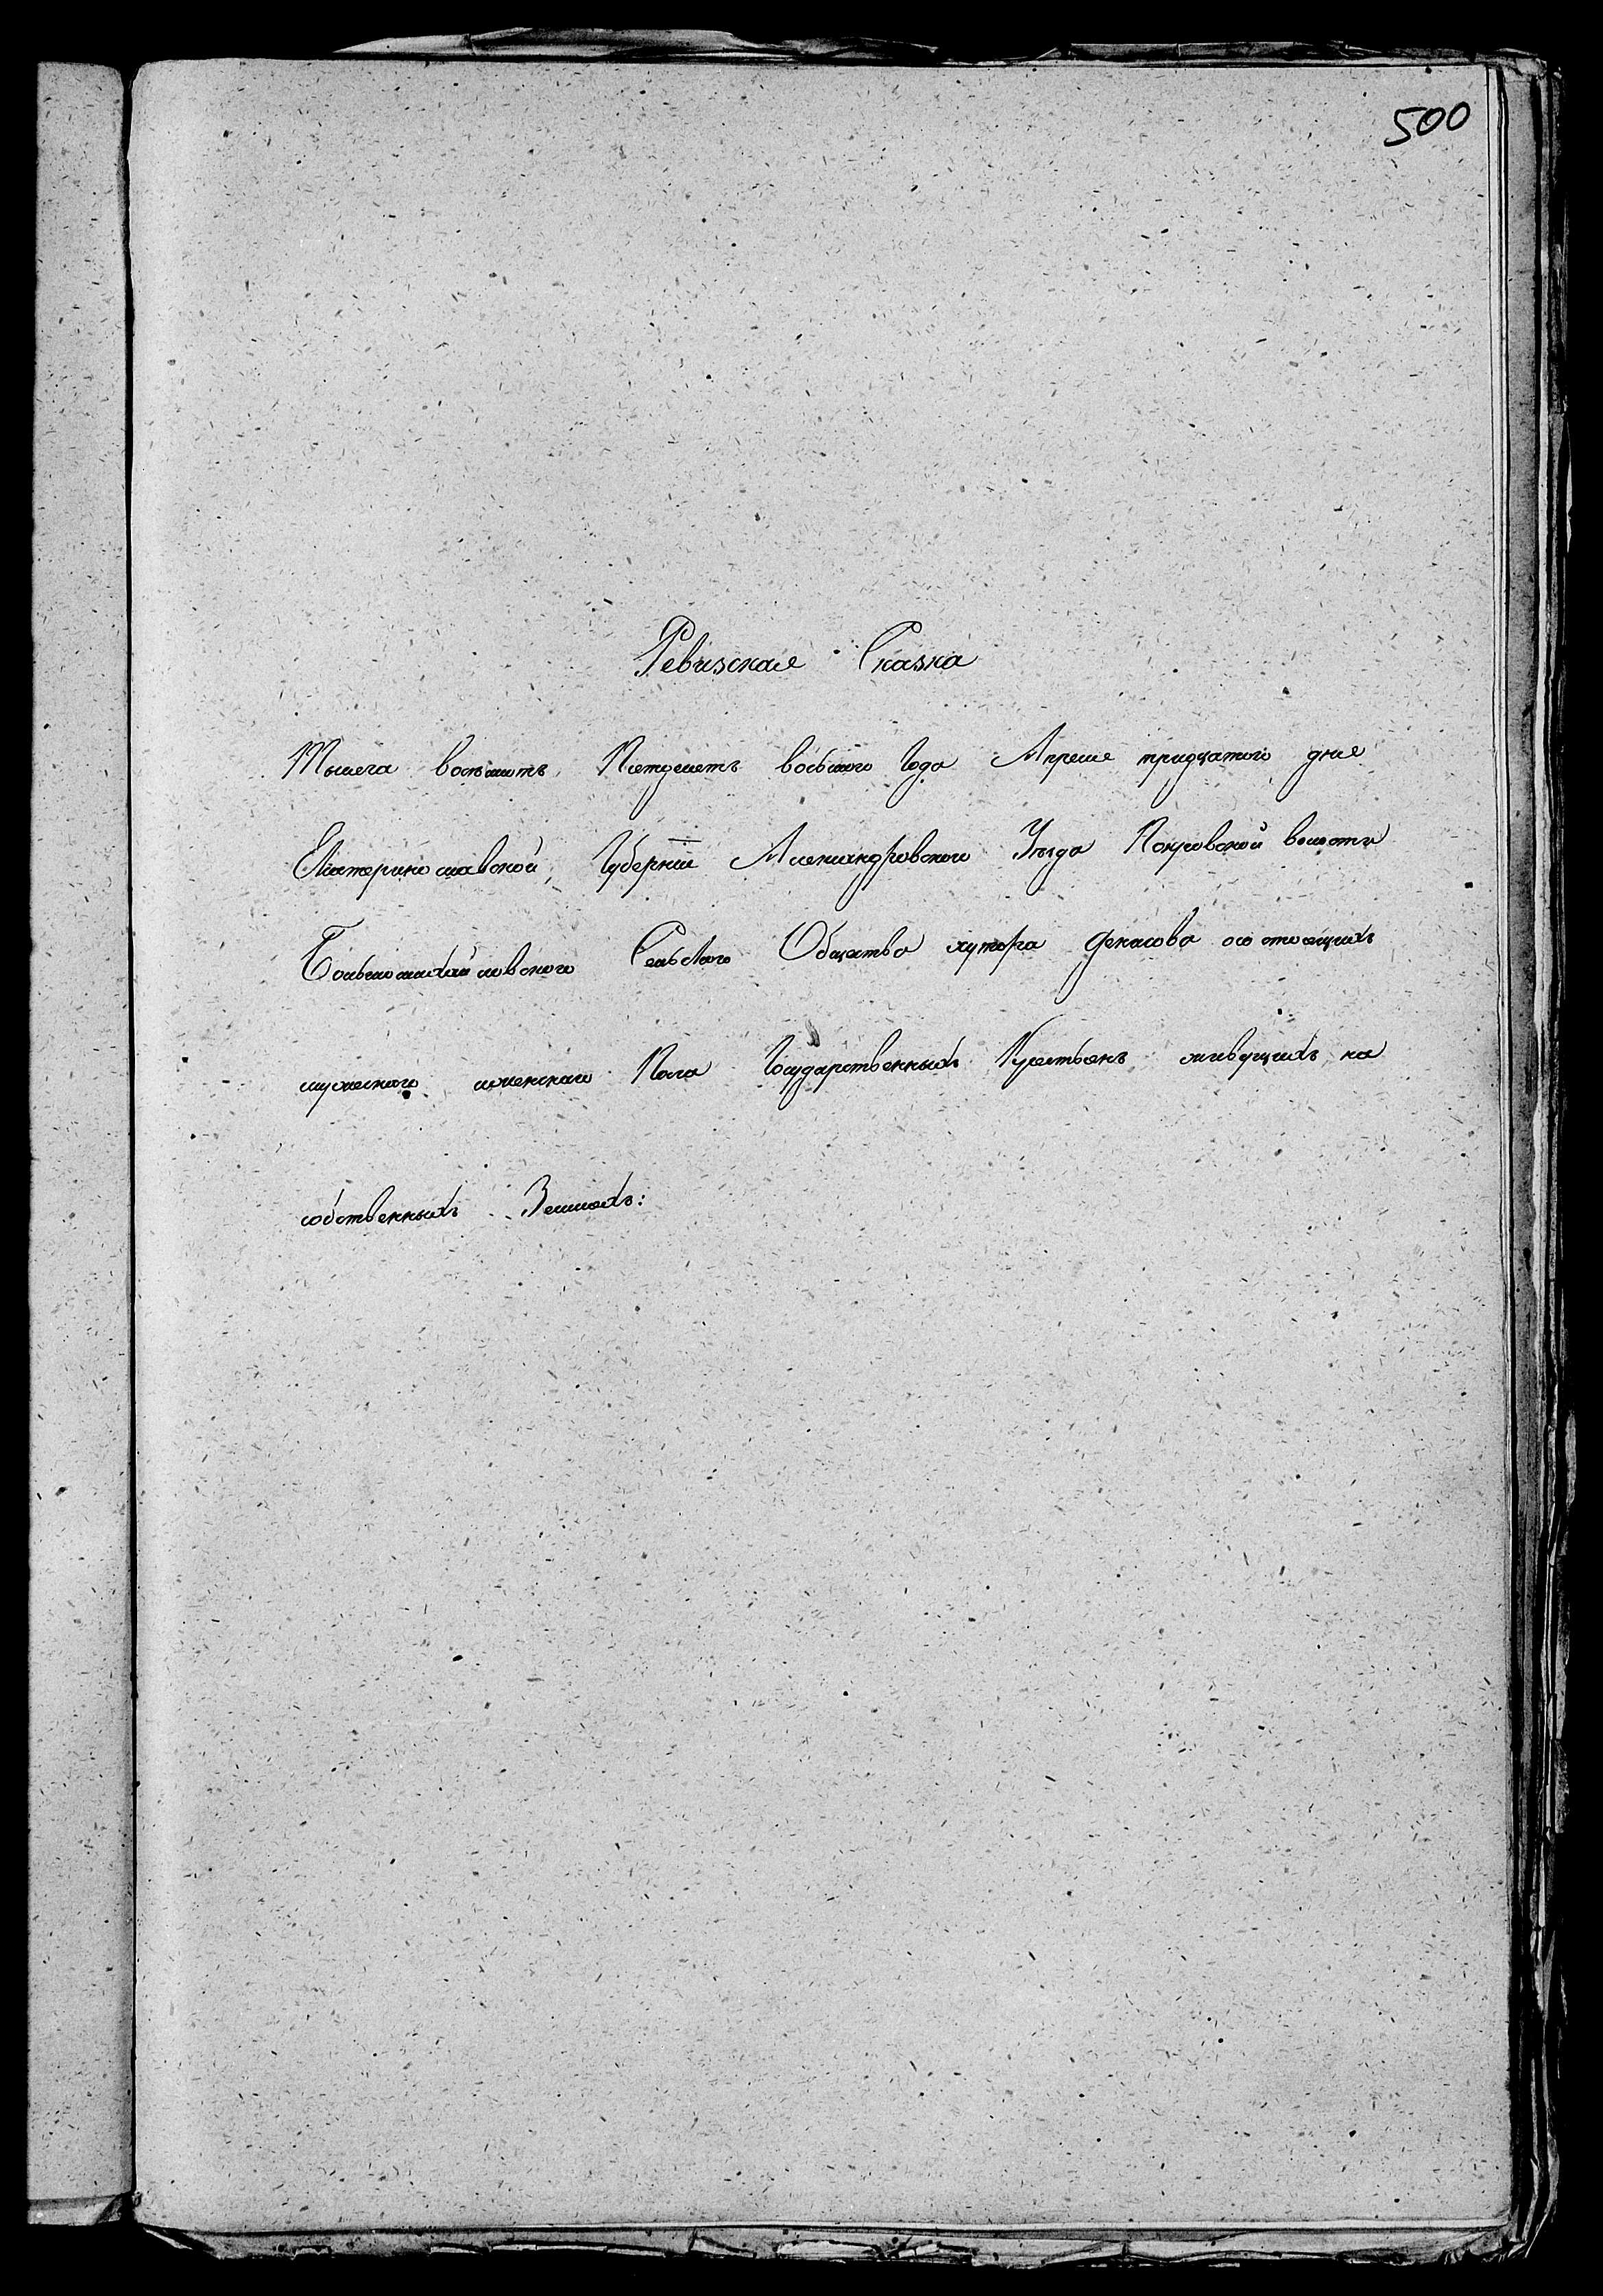 500
Ревизская Сказка
Тысеча восемьсотъ Петдесетъ восьмого Года Апреля тридцатого дня
Екатеринославской Губернии Александровского Уезда Покровской волости
Сельского Общества хутора о состоящихъ
мужеского и женскаго Пола Государственныхъ Крестьянъ живущихъ на
собственныхъ Земляхъ: